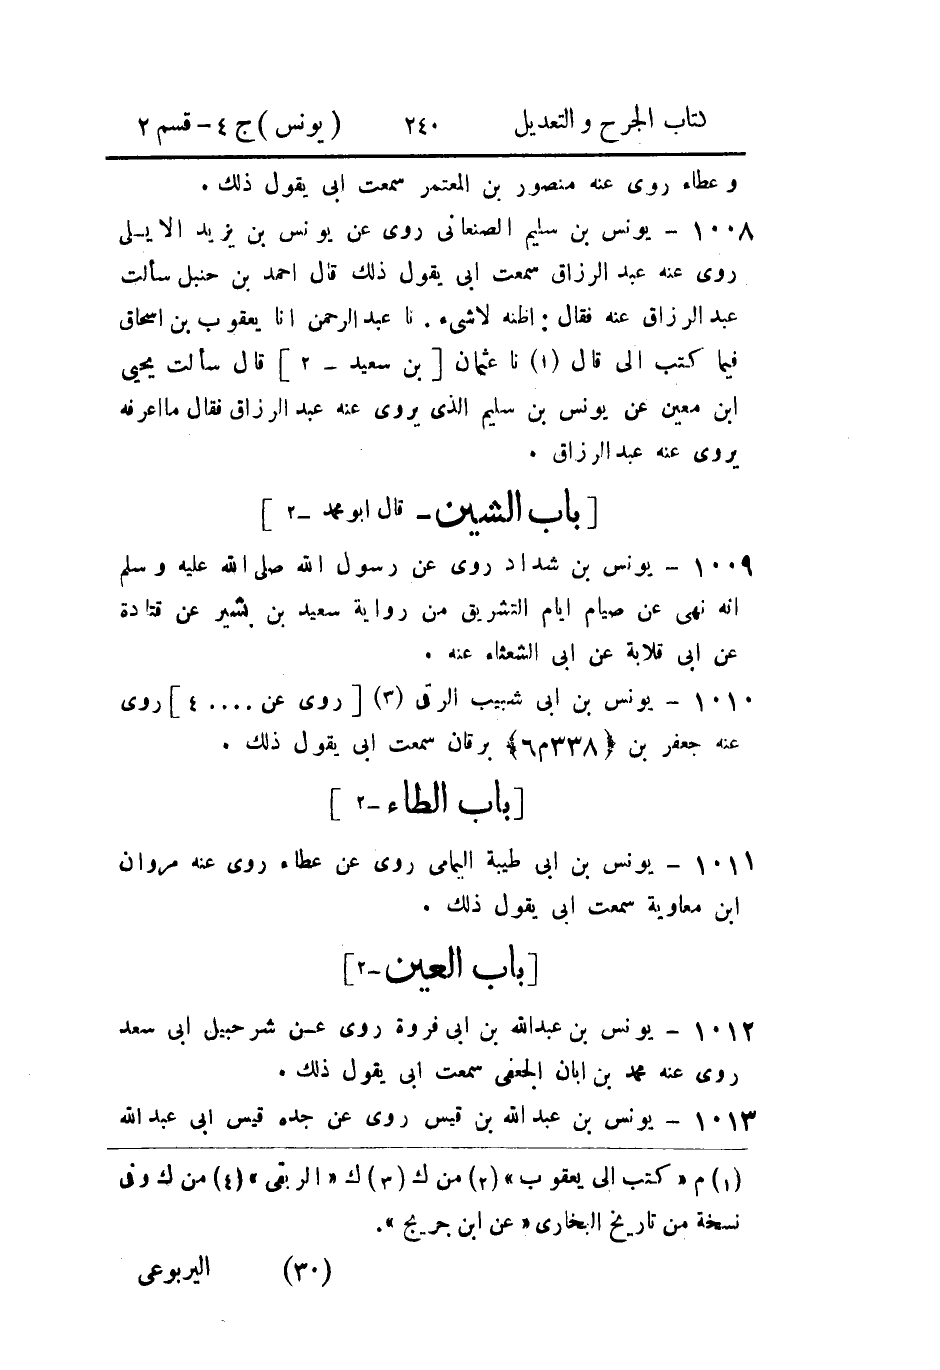 كتاب الجرح و التعديل ٢٤٠ (يونس) ج ٤ - قسم ٢
و عطاء روى عنه منصور بن المعتمر سمعت ابى يقول ذلك .
١٠٠٨ - يونس بن سليم الصنعانى روى عن يونس بن يزيد الايلى
روى عنه عبد الرزاق سمعت ابى يقول ذلك قال احمد بن حنبل سألت
عبد الرزاق عنه فقال : اظنه لاشىء . نا عبد الرحمن انا يعقوب بن اسحاق
فيما كتب الى قال (١) نا عثمان [ بن سعيد - ٢ ] قال سألت يحيى
ابن معين عن يونس بن سليم الذى يروى عنه عبد الرزاق فقال مااعرفه
يروى عنه عبد الرزاق .
[ باب الشين - قال ابو محمد - ٢ ]
١٠٠٩ - يونس بن شداد روى عن رسول الله صلى الله عليه و سلم
انه نهى عن صيام ايام التشريق من رواية سعيد بن بشير عن قتادة
عن ابى قلابة عن ابى الشعثاء عنه .
١٠١٠ - يونس بن ابى شبيب الرقى (٣) [ روى عن .... ٤ ] روى
عنه جعفر بن ﴿٣٣٨م٦﴾ برقان سمعت ابى يقول ذلك .
[ باب الطاء - ٢ ]
١٠١١ - يونس بن ابى طيبة اليمامى روى عن عطاء روى عنه مروان
ابن معاوية سمعت ابى يقول ذلك .
[ باب العين - ٢ ]
١٠١٢ - يونس بن عبدالله بن ابى فروة روى عن شرحبيل ابى سعد
روى عنه محمد بن ابان الجعفى سمعت ابى يقول ذلك .
١٠١٣ - يونس بن عبد الله بن قيس روى عن جده قيس ابى عبد الله
(١) م « كتب الى يعقوب » (٢) من ك (٣) ك « الربقى » (٤) من ك وفى
نسخة من تاريخ البخارى « عن ابن جريج ».
(٣٠) اليربوعى